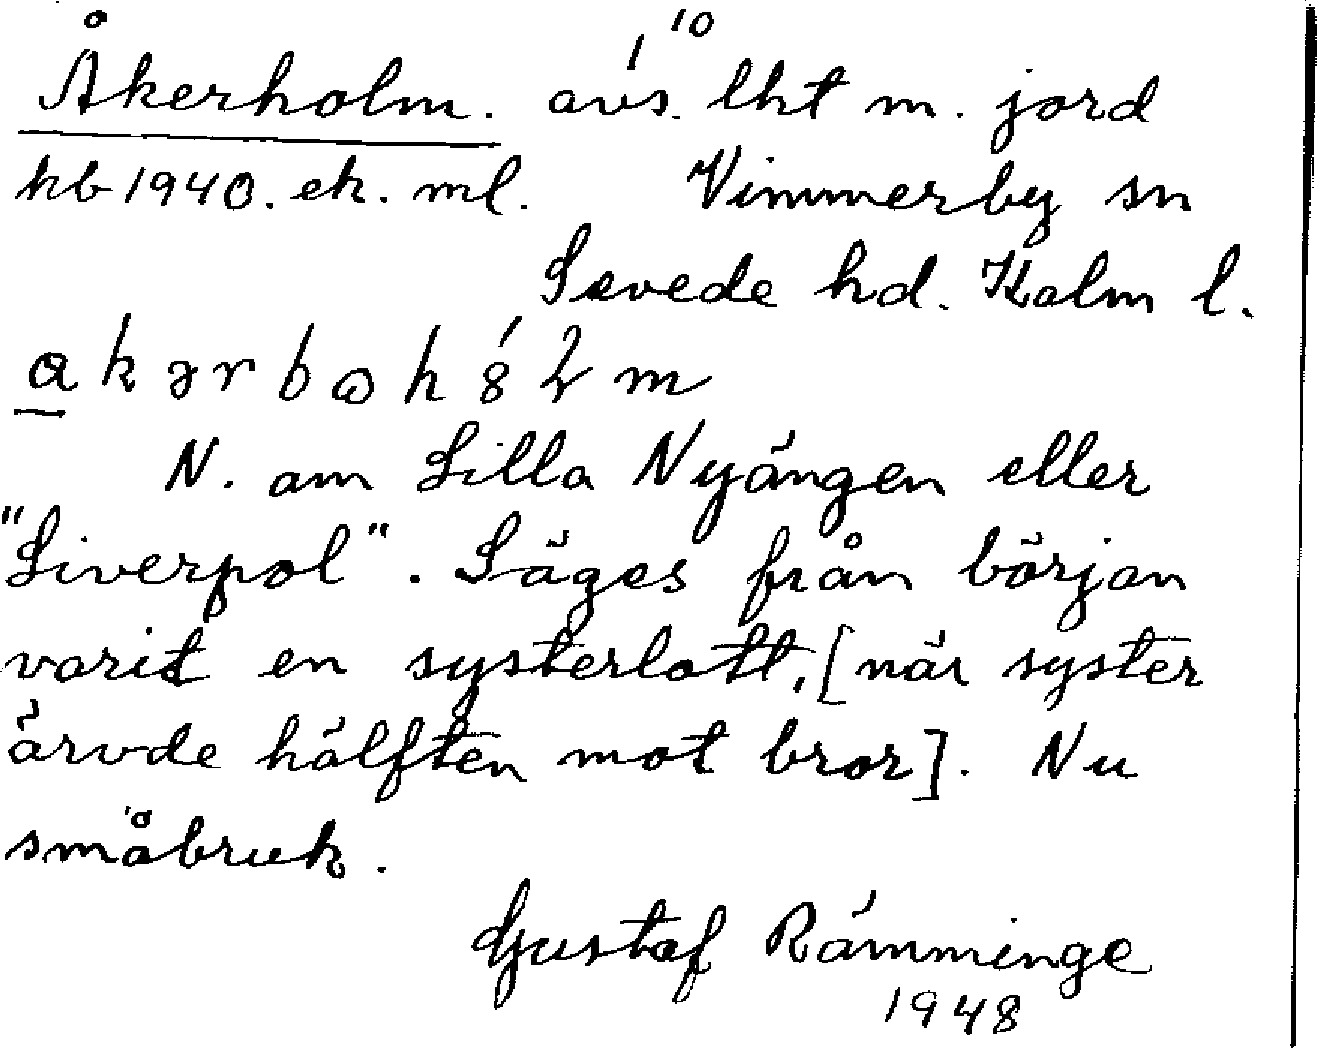 Åkerholm. avs. 1/10 lht m. jord
kb 1940. ek. ml. Vimmerby sn
Sevede hd. Kalm l.
N. om Lilla Nyängen eller
"Liverpol". Säges från början
varit en systerlott, [när syster
ärvde hälften mot bror]. Nu
småbruk.
Gustaf Rämminge
1948